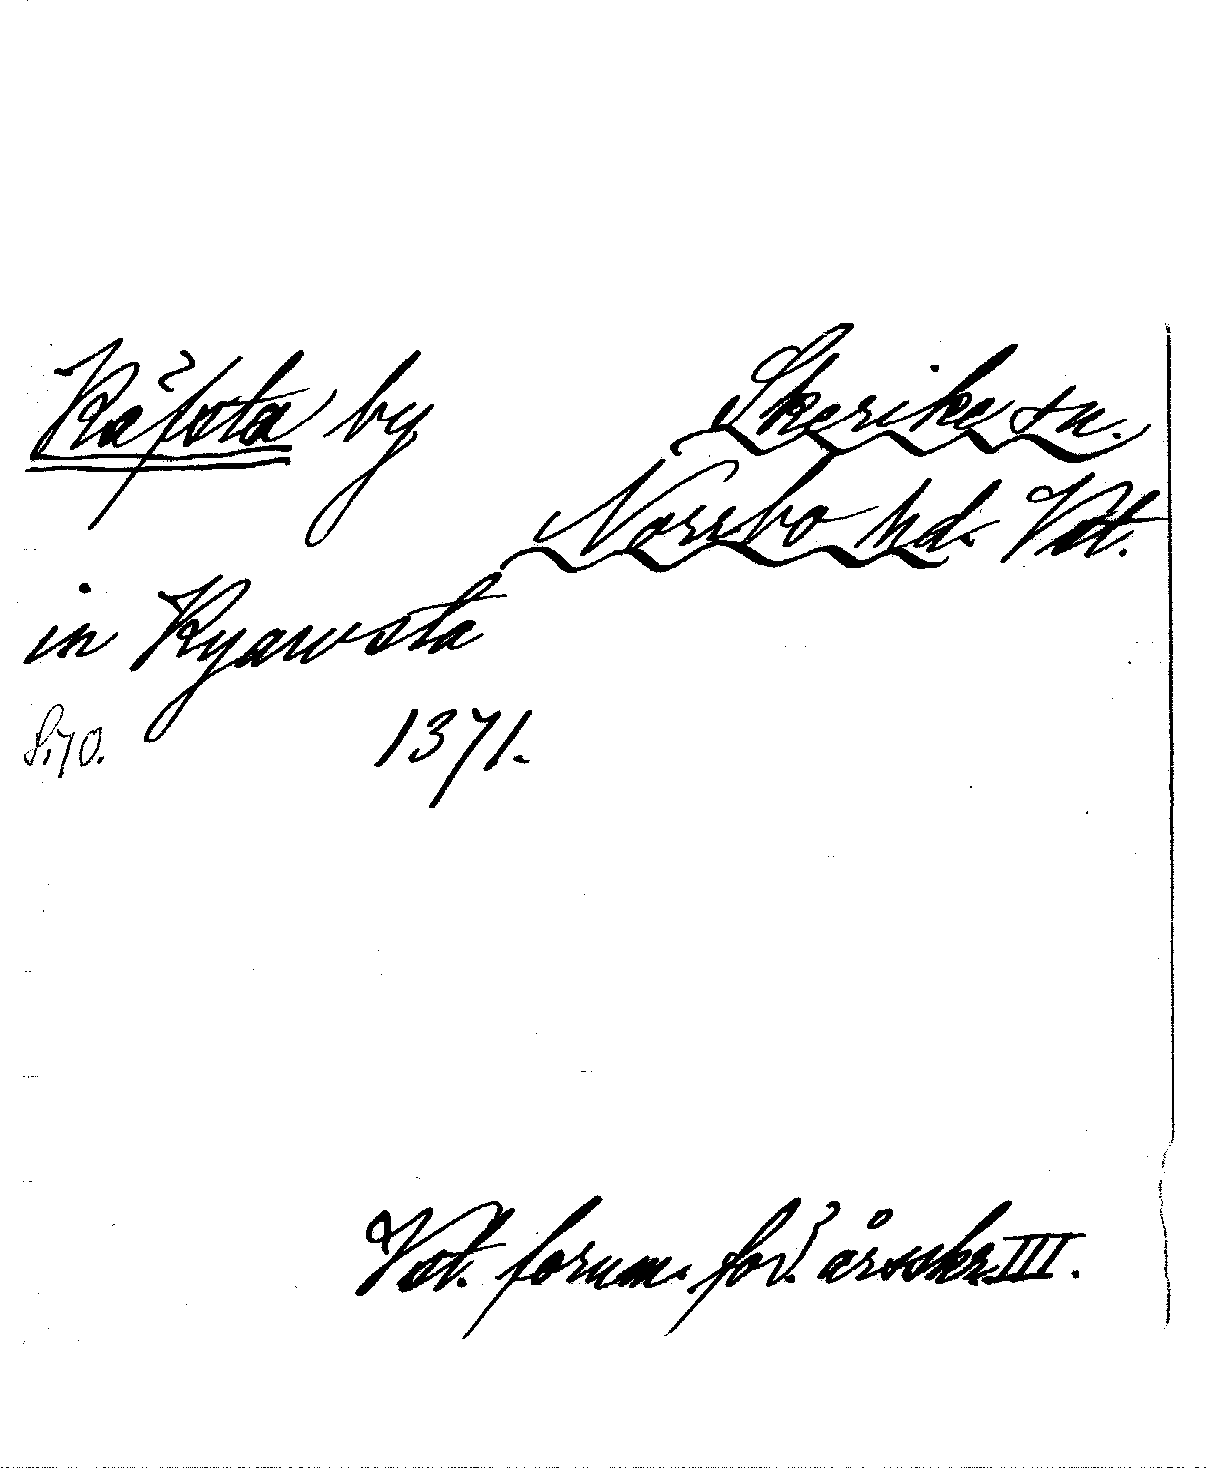 Räfsta by Skerike sn.
Norrbo hd. Vst.
in Ryawsta
S. 70. 1371.
Vst. fornm. för. årsskr. III.